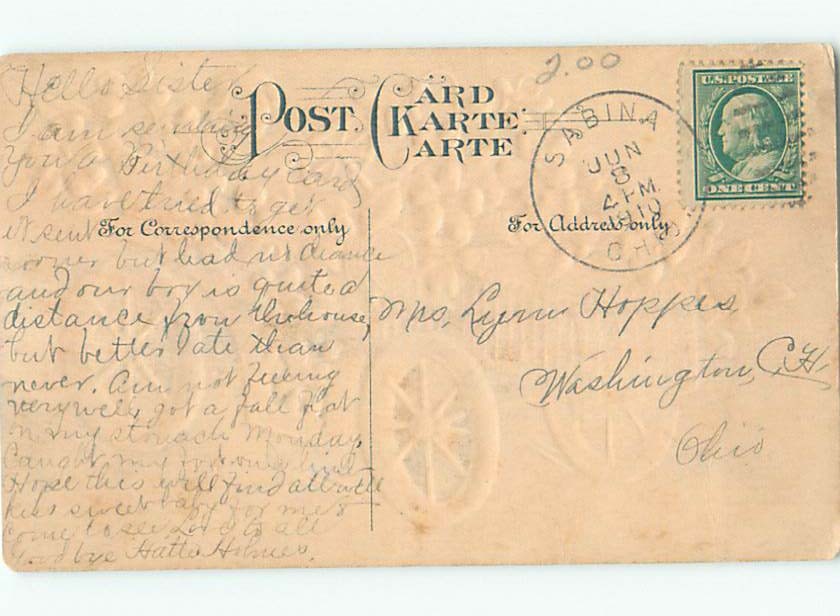 2.00
POST CÄRD
KARTE
CARTE
U.S. POSTAGE
ONE CENT
SABINA
JUN
6
4 PM
1910
OHIO
For Correspondence only
For Address only
Hello Sister
I am sending
you a Birthday card
I have tried to get
it sent
sooner but had no chance
and our box is quite a
distance from the house,
but better late than
never. Am not feeling
very well, got a fall flat
on my stomach Monday,
Caught my foot on a
Hope this will find all well
kiss sweet baby for me &
come to see Love to all
Goodbye Hattie Holmes.
Mrs. Lynn Hoppes
Washington, C.H.
Ohio